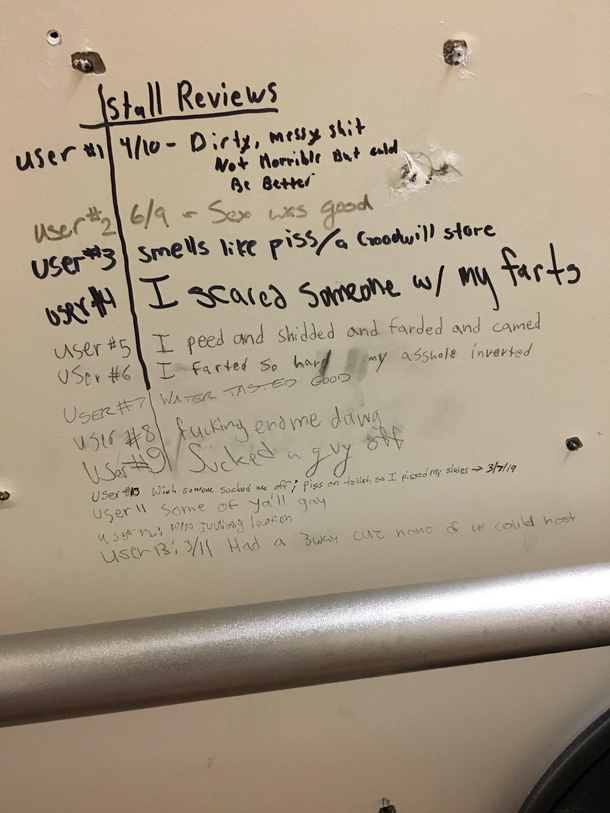 Stall Reviews
user #1 4/10 - Dirty, messy shit
Not Horrible But could
Be Better
user #2 6/9 - Sex was good
user #3 smells like piss/a Goodwill store
user #4 I scared someone w/ my farts
user #5 I peed and shidded and farded and camed
user #6 I farted so hard my asshole inverted
USER #7 WATER TASTED GOOD
user #8 fucking end me dawg
User #9 Sucked a guy off
User #10 Wish someone sucked me off; piss on toilet, so I pissed my shoes → 3/7/19
user 11 some of ya'll gay
user 12: 10/10 location
user 13: 3/11 Had a 3way cuz none of us could host